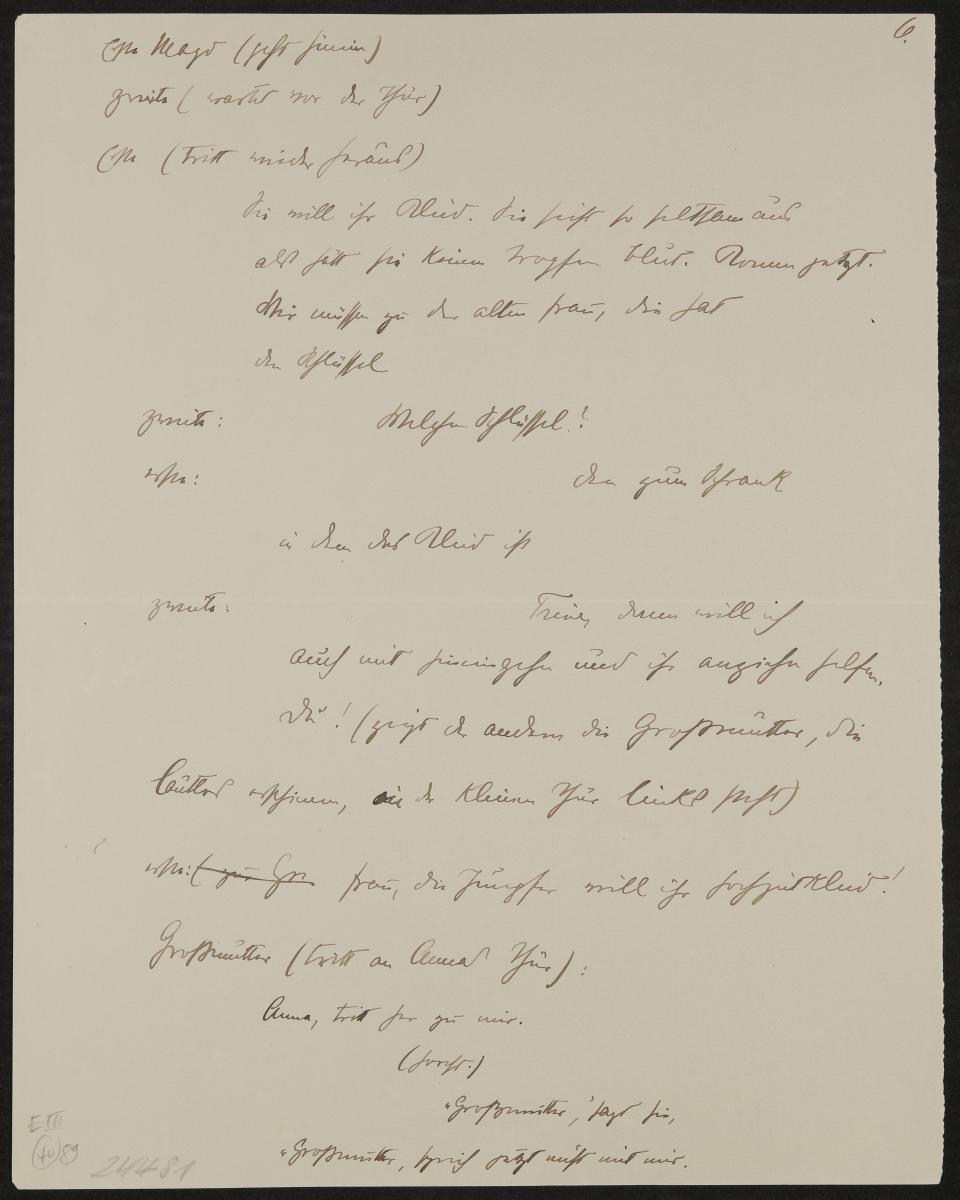 6.
Erste Magd (geht hinein)
zweite (wartet vor der Thür)
Erste (tritt wieder heraus)
Sie will ihr Kleid. Sie sieht so seltsam aus
als hätt sie keinen tropfen blut. Komm jetzt.
Wir müssen zu der alten frau, die hat
den Schlüssel
zweite:
Welchen Schlüssel?
erste:
den zum Schrank
in dem das Kleid ist
zweite:
Trine, dann will ich
auch mit hineingehn und ihr anziehn helfen.
Du! (zeigt der andern die Großmutter, die
lautlos erschienen, in der kleinen Thür links steht)
erste: (zur Gr frau, die Jungfer will ihr hochzeitkleid!
Großmutter (tritt an Annas Thür):
Anna, tritt her zu mir.
(horcht.)
"Großmutter," sagt sie,
"Großmutter, sprich jetzt nicht mit mir.
E III
89
24481